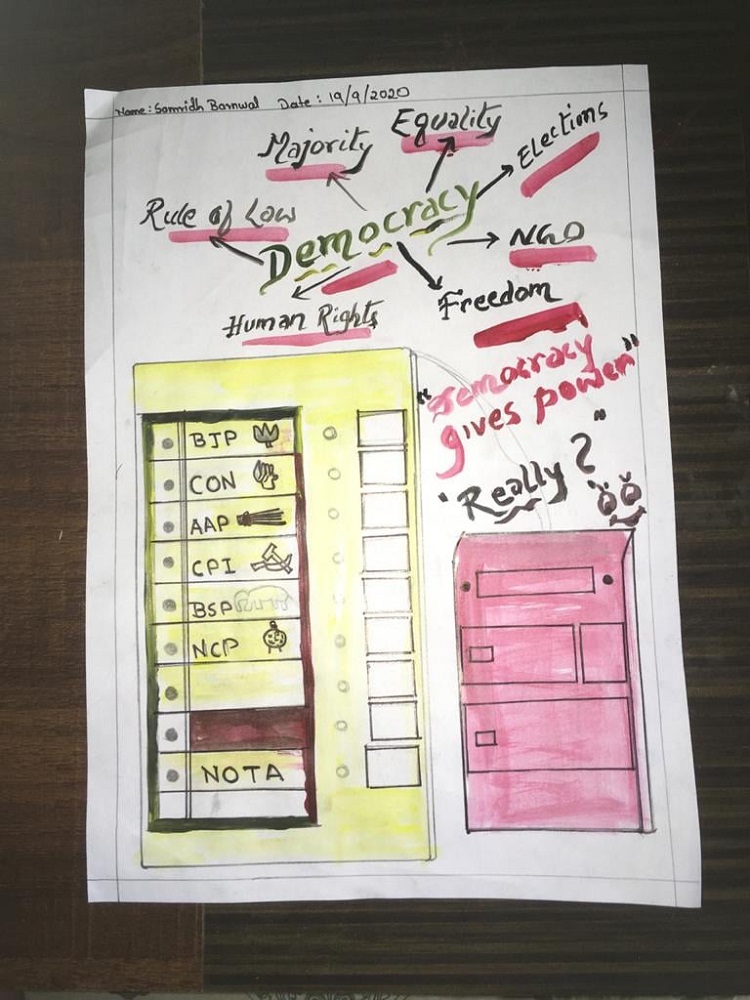 Name: Samridh Barnwal Date: 19/9/2020
Majority
Equality
Elections
Rule of Law
Democracy
NGO
Human Rights
Freedom
"Democracy
gives power"
"Really?"
BJP
CON
AAP
CPI
BSP
NCP
NOTA